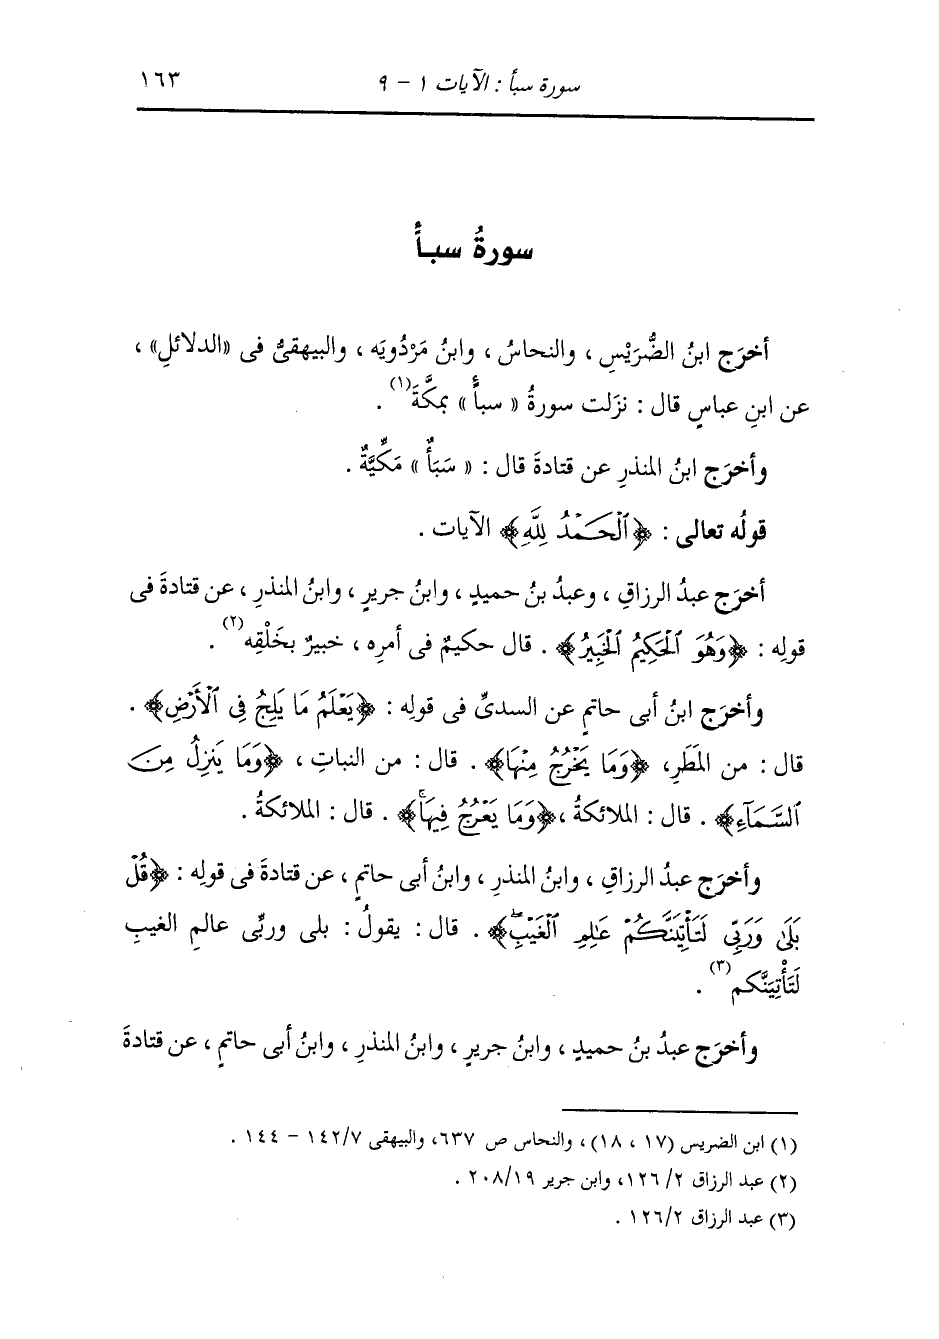 سورة سبأ : الآيات ١ - ٩
١٦٣
سورةُ سبأ
أخرَج ابنُ الضُّرَيْسِ ، والنحاسُ ، وابنُ مَرْدُويَه ، والبيهقىُّ فى «الدلائلِ» ،
عن ابنِ عباسٍ قال : نزَلت سورةُ « سبأ » بمكَّةَ(١) .
وأخرَج ابنُ المنذرِ عن قتادةَ قال : « سَبَأٌ » مَكِّيَّةٌ .
قولُه تعالى : ﴿ٱلْحَمْدُ لِلَّهِ﴾ الآيات .
أخرَج عبدُ الرزاقِ ، وعبدُ بنُ حميدٍ ، وابنُ جريرٍ ، وابنُ المنذرِ ، عن قتادةَ فى
قولِه : ﴿وَهُوَ ٱلْحَكِيمُ ٱلْخَبِيرُ﴾ . قال حكيمٌ فى أمرِه ، خبيرٌ بخَلْقِه(٢) .
وأخرَج ابنُ أبى حاتمٍ عن السدىِّ فى قولِه : ﴿يَعْلَمُ مَا يَلِجُ فِى ٱلْأَرْضِ﴾ .
قال : من المَطَرِ، ﴿وَمَا يَخْرُجُ مِنْهَا﴾ . قال : من النباتِ ، ﴿وَمَا يَنزِلُ مِنَ
ٱلسَّمَآءِ﴾ . قال : الملائكةُ ، ﴿وَمَا يَعْرُجُ فِيهَا﴾ . قال : الملائكةُ .
وأخرَج عبدُ الرزاقِ ، وابنُ المنذرِ ، وابنُ أبى حاتمٍ ، عن قتادةَ فى قولِه : ﴿قُلْ
بَلَىٰ وَرَبِّى لَتَأْتِيَنَّكُمْ عَٰلِمِ ٱلْغَيْبِ﴾ . قال : يقولُ : بلى وربِّى عالمِ الغيبِ
لَتَأْتِيَنَّكم(٣) .
وأخرَج عبدُ بنُ حميدٍ ، وابنُ جريرٍ ، وابنُ المنذرِ ، وابنُ أبى حاتمٍ ، عن قتادةَ
(١) ابن الضريس (١٧ ، ١٨) ، والنحاس ص ٦٣٧، والبيهقى ١٤٢/٧ - ١٤٤ .
(٢) عبد الرزاق ١٢٦/٢، وابن جرير ٢٠٨/١٩ .
(٣) عبد الرزاق ١٢٦/٢ .